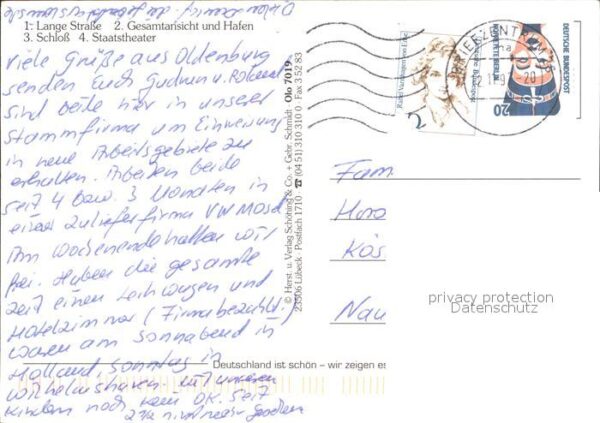 1: Lange Straße 2: Gesamtansicht und Hafen
3: Schloß 4. Staatstheater
Viele Grüße aus Oldenburg
senden Euch Gudrun u. Roland
sind beide hier in unserer
Stammfirma um Einweisung
in neue Arbeitsgebiete zu
erhalten. Arbeiten beide
seit 4 bzw. 3 Monaten in
einer Zulieferfirma VW Mosel
Am Wochenende hatten wir
frei. Haben die gesamte
Zeit einen Leihwagen und
Hotelzimmer (Firma bezahlt.)
waren am Sonnabend in
Holland, Sonntag in
Wilhelmshaven mit unseren
Kindern noch kein OK. Seit
© Herst. u. Verlag Schöning & Co. + Gebr. Schmidt
23506 Lübeck · Postfach 1710 ☎ (04 51) 310 310 0 · Fax 3 52 83
Olo 7019
Deutschland ist schön – wir zeigen es
Rahel Varnhagen von Ense
Deutsche Bundespost
2
BRIEFZENTRUM
DEUTSCHE BUNDESPOST
20
Fam
Kös
Nau
privacy protection
Datenschutz